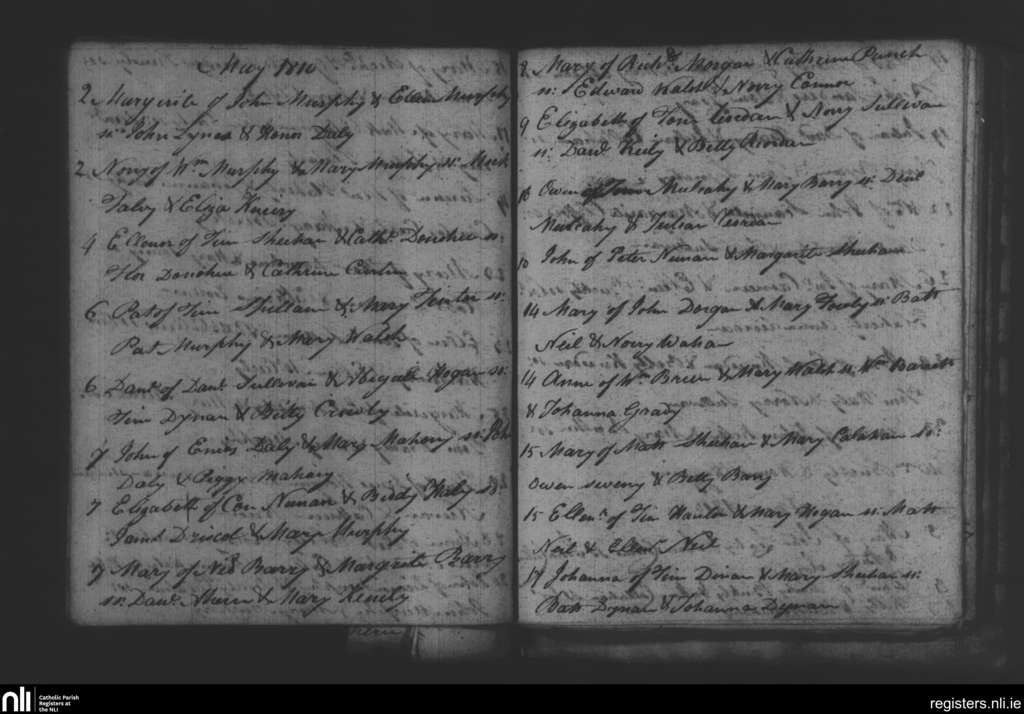 May 1810
2 Margerite of John Murphy & Ellen Murphy
sr. John Lynes & Honor Daly
2 Nony of Wm Murphy & Mary Murphy sr. Mick
Falvy & Eliza
4 Ellenor of Tim Sheehan & Cath. Donohue sr.
Flor Donohue & Cathrine
6 Pat of Tim Spillane & Mary sr.
Pat Murphy & Mary Walsh
6 Danl. of Danl. Sullivan & Abigale Hogan sr.
Tim Dynan & Bitty Crowly
7 John of Enios Daly & Mary Mahony sr. John
Daly & Peggy Mahony
7 Elizabeth of Con Nunan & Biddy sr.
Jams. Driscol & Mary Murphy
9 Mary of Ned Barry & Margrite Barry
sr. Danl. & Mary
8 Mary of Richd. Morgan & Catherine Punch
sr. Edward Walsh & Nory Connor
9 Elizabeth of Tim Riordan & Nory Sullivan
sr. Danl. Reily & Betty Riordan
10 Owen of Mulcahy & Mary Barry sr. Denl
Mulcahy & Riordan
10 John of Peter Nunan & Margarite Sheehan
14 Mary of John Dorgan & Mary sr. Batt
Neil & Nory
14 Anne of Wm Brien & Mary Walsh sr. Wm Barrett
& Johanna Grady
15 Mary of Matt Sheehan & Mary Calahan sr.
Owen Sweny & Betty Barry
15 Ellen. of Tim Hanlon & Mary Hogan sr. Matt
Neil & Ellen. Neil
17 Johanna of Tim & Mary Sheehan sr.
Batt Dynan & Johanna Dynan
nli Catholic Parish
Registers at
the NLI
registers.nli.ie